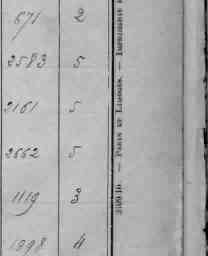 671 2
2583 5
2161 5
2662 5
1119 3
1998 4
— PARIS ET LIMOGES. — IMPRIMERIE